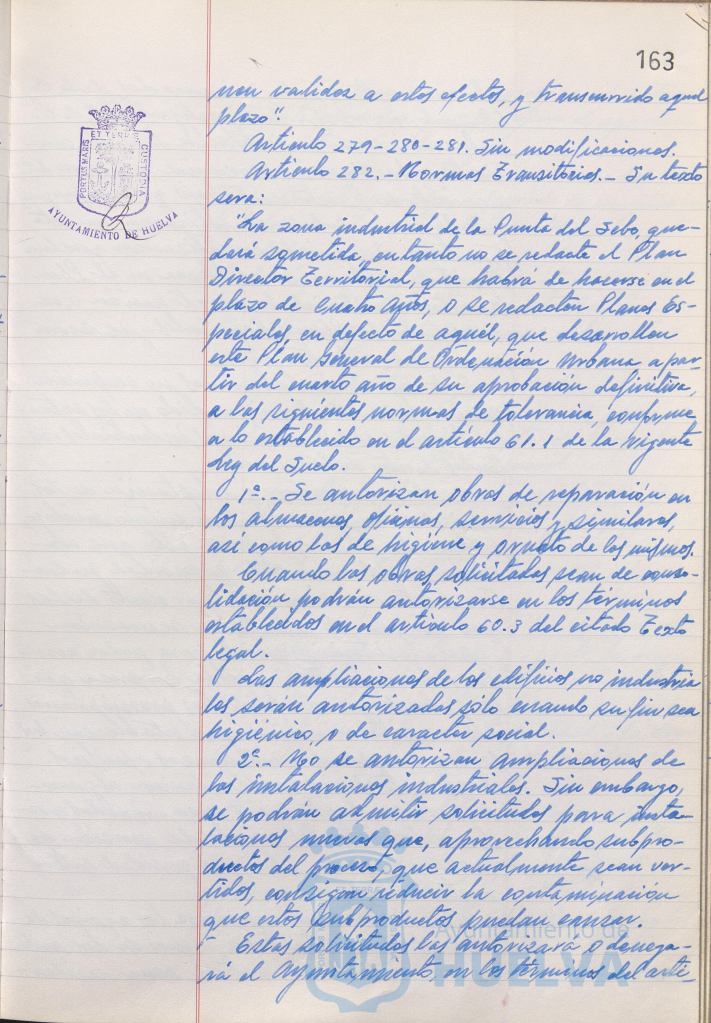 163
ET TERRE
PORTUS MARIS
CUSTODIA
AYUNTAMIENTO DE HUELVA
validez a estos efectos, y transcurrido aquel
plazo".
Artículo 279-280-281. Sin modificaciones.
Artículo 282.- Normas Transitorias.- Su texto
sera:
"La zona industrial de la Punta del Sebo, que-
dará sometida, en tanto no se redacte el Plan
Director Territorial, que habrá de hacerse en el
plazo de cuatro años, o se redacten Planes Es-
peciales, en defecto de aquél, que desarrollen
este Plan General de Ordenación Urbana a par-
tir del cuarto año de su aprobación definitiva,
a las siguientes normas de tolerancia, conforme
a lo establecido en el artículo 61.1 de la vigente
Ley del Suelo.
1ª.- Se autorizan obras de reparación en
los almacenes, oficinas, servicios y similares,
así como las de higiene y ornato de los mismos.
Cuando las obras solicitadas sean de conso-
lidación podrán autorizarse en los términos
establecidos en el artículo 60.3 del citado Texto
legal.
Las ampliaciones de los edificios no industria
les serán autorizadas sólo cuando su fin sea
higiénico, o de caracter social.
2ª.- No se autorizan ampliaciones de
las instalaciones industriales. Sin embargo,
se podrán admitir solicitudes para insta-
laciones nuevas que, aprovechando subpro-
ductos del proceso, que actualmente sean ver-
tidos, consigan reducir la contaminación
que estos subproductos puedan causar.
Estas solicitudes las autorizará o denega-
rá el Ayuntamiento, en los términos del artí-
Ayuntamiento de
HUELVA